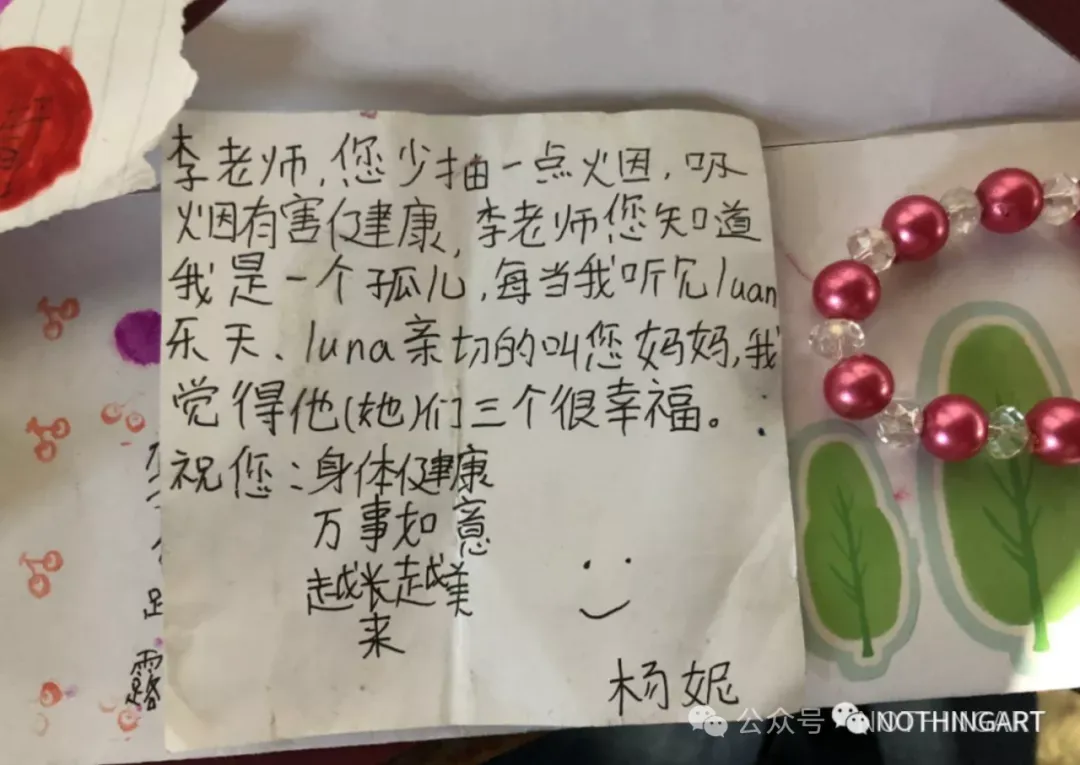 李老师,您少抽一点烟,吸
烟有害健康,李老师您知道
我是一个孤儿,每当我听见luan
乐天、luna亲切的叫您妈妈,我
觉得他(她)们三个很幸福。
祝您:身体健康
万事如意
越长越美
来
杨妮
露
公众号 NOTHINGART
NOTHINGART